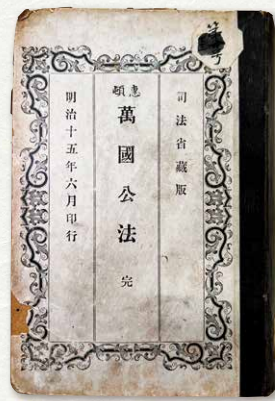 司法省藏版
惠頓
萬國公法 完
明治十五年六月印行